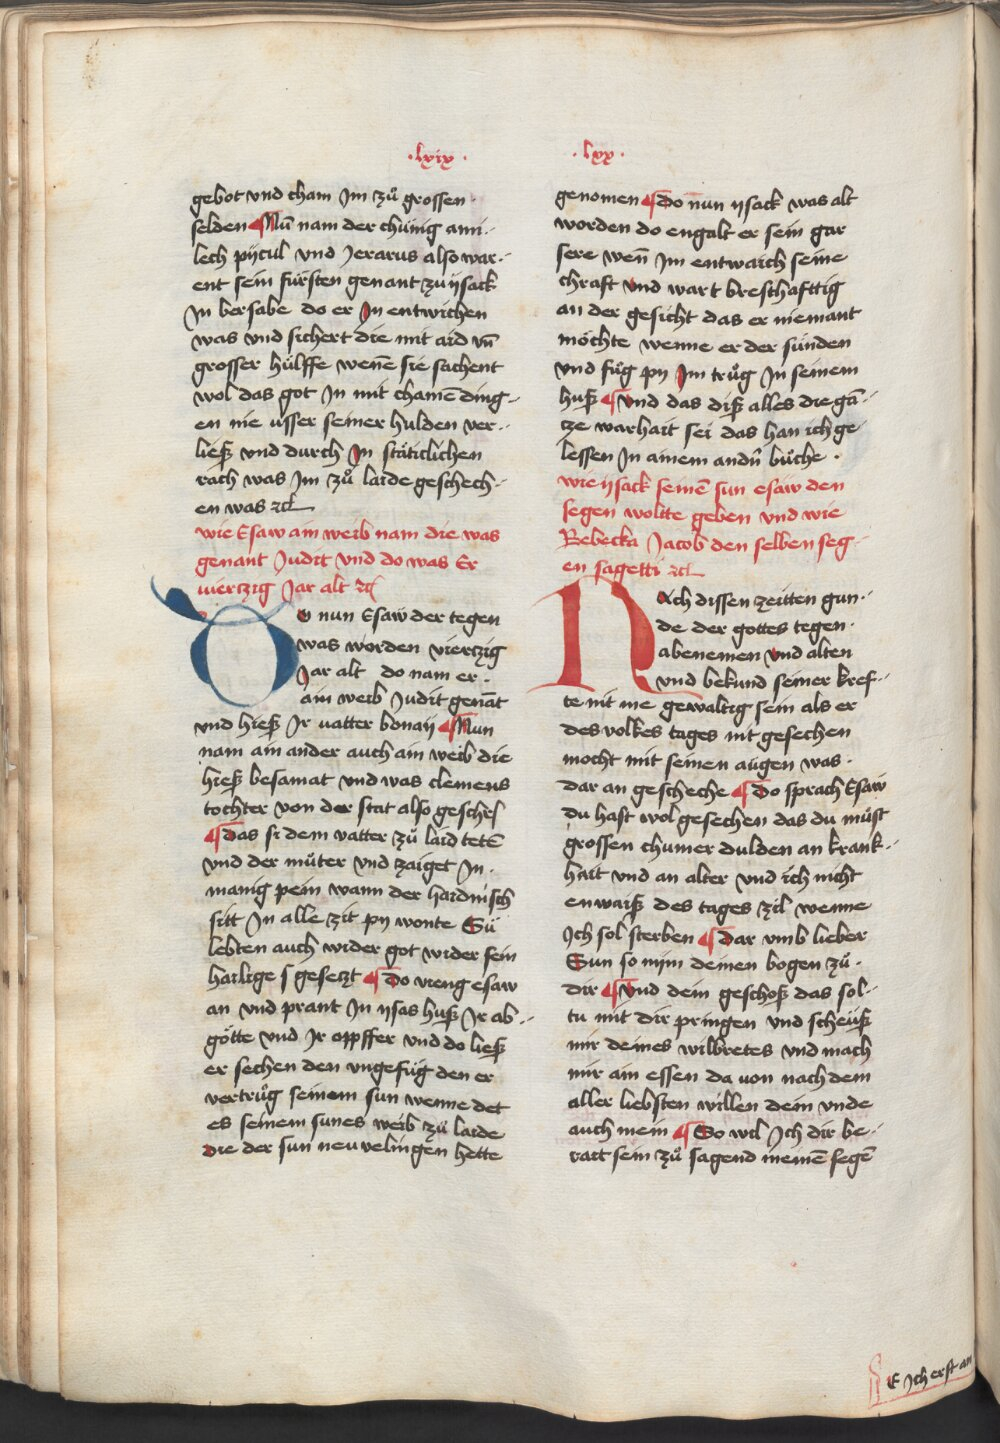 ·lxix·
gebot vnd cham Jm zuͦ grossen
selden ¶Nū nam der chünig am̄i-
lech pijcul vnd Jerarus also war-
ent sein fürsten genant zu ijsack
Jn bersabe do er Jn entwichen
was vnd sichert die mit aid vn̄
grosser hülffe wenē sie sachent
wol das got Jn mit chainē ding-
en nie usser seiner hulden ver-
ließ vnd durch Jn stäticlichen
rach was Jm zuͦ laide geschech-
en was ꝛcꝭ
wie Esaw ain weib nam die was
genant Judit vnd do was Er
viertzig Jar alt ꝛcꝭ
Do nun Esaw der tegen
was worden viertzig
Jar alt do nam er
ain weib Judit genāt
vnd hieß Jr vatter bonaij ¶Nun
nam ain ander auch ain weib die
hieß besamat vnd was clemens
tochter von der stat also gescheſ
¶Das si dem vatter zuͦ laid tetē
vnd der müter vnd zaiget Jn
manig pein wann der haidnisch
sitt Jn alle zit pij wonte Sü
lebten auch wider got wider sein
hailige ſ gesetzt ¶Do vieng esaw
an vnd prant Jn ijsas huß Jr ab-
götte vnd Jr oppffer vnd do ließ
er sechen den vngefüg den er
vertruͦg seinem sun wenne det
es seinem sunes weib zü laide
Die der sun neuwelingen hette
·lxx·
genomen ¶Do nun ijsack was alt
worden do engalt er sein gar
sere wen̄ Jm entwaich seine
chraft vnd wart breshafftig
an der gesicht das er niemant
möchte wenne er der sünden
vnd füg pij Jm truͦg Jn seinem
huß ¶Vnd das diß alles die gā-
tze warhait sei das han ich ge-
lessen Jn ainem andn̄ büche
wie ijsack seinē sun esaw den
segen woltte geben vnd wie
Rebecka Jacob den selben seg-
en sagetti ꝛcꝭ
Nach dissen zeitten gun-
de der gottes tegen
abenemen vnd alten
vnd bekund seiner kref-
te nit me gewaltig sein als er
des volkes tages nit gesechen
mocht mit seinen augen was
dar an gescheche ¶Do sprach Esaw
du hast wol gesechen das du müst
grossen chumer dulden an krank-
hait vnd an alter vnd ich nicht
enwaiß des tages zil wenne
Ich sol sterben ¶Dar vmb lieber
Sun so nijm deinen bogen zuͦ
dir ¶Vnd dein geschoß das sol-
tu mit dir pringen vnd scheüß
mir deines wilbretes vnd mach
mir ain essen da von nach dem
aller liebsten willen dein vnde
auch mein ¶So wil Ich dir be-
rait sein zuͦ sagend meinē segē
E ich erst an